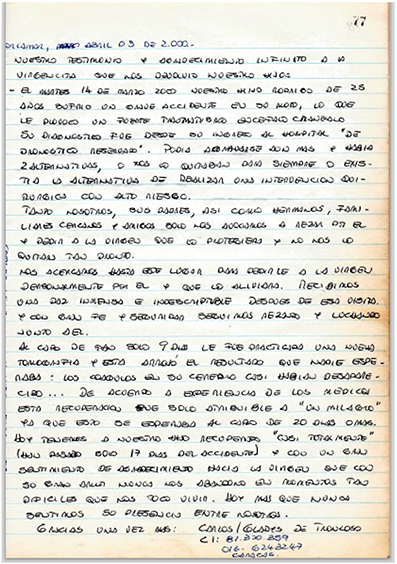 77
ABRIL 03 DE 2.000.-
NUESTRO TESTIMONIO Y AGRADECIMIENTO INFINITO A LA
VIRGENCITA QUE NOS DEVOLVIO NUESTRO HIJO:
- EL MARTES 14 DE MARZO 2000 NUESTRO HIJO RODRIGO DE 25
AÑOS SUFRIO UN GRAVE ACCIDENTE EN SU MOTO, LO QUE
LE PROVOCO UN FUERTE TRAUMATISMO ENCEFALO CRANEANO
SU DIAGNOSTICO FUE DESDE SU INGRESO AL HOSPITAL "DE
DIAGNOSTICO RESERVADO". PODIA AGRAVARSE AUN MAS Y HABIA
2 ALTERNATIVAS, O NOS LO QUITABAN PARA SIEMPRE O EXIS-
TIA LA ALTERNATIVA DE REALIZAR UNA INTERVENCION QUI-
RURGICA CON ALTO RIESGO.
TANTO NOSOTROS, SUS PADRES, ASI COMO HERMANOS, FAMI-
LIARES CERCANOS Y AMIGOS SOLO NOS AVOCAMOS A REZAR POR EL
Y PEDIR A LA VIRGEN QUE LO PROTEGIERA Y NO NOS LO
QUITARA TAN PRONTO.
NOS ACERCAMOS HASTA ESTE LUGAR PARA PEDIRLE A LA VIRGEN
PERSONALMENTE POR EL Y QUE LO ALIVIARA. RECIBIMOS
UNA PAZ INMENSA E INDESCRIPTIBLE DESPUES DE ESA VISITA.
Y CON GRAN FE Y SEGURIDAD SEGUIMOS REZANDO Y LUCHANDO
JUNTO A EL.
AL CABO DE TAN SOLO 9 DIAS LE FUE PRACTICADA UNA NUEVA
TOMOGRAFIA Y ESTA ARROJÓ EL RESULTADO QUE NADIE ESPE-
RABA: LOS COAGULOS EN SU CEREBRO CASI HABIAN DESAPARE-
CIDO... DE ACUERDO A EXPERIENCIA DE LOS MEDICOS
ESTA RECUPERACION FUE SOLO ATRIBUIBLE A "UN MILAGRO"
YA QUE ESTO SE ESPERABA AL CABO DE 20 DIAS O MAS.
HOY TENEMOS A NUESTRO HIJO RECUPERADO "CASI TOTALMENTE"
(HAN PASADO SOLO 17 DIAS DEL ACCIDENTE) Y CON UN GRAN
SENTIMIENTO DE AGRADECIMIENTO HACIA LA VIRGEN QUE CON
SU GRAN AMOR NUNCA NOS ABANDONO EN MOMENTOS TAN
DIFICILES QUE NOS TOCO VIVIR. HOY MAS QUE NUNCA
SENTIMOS SU PRESENCIA ENTRE NOSOTROS.
GRACIAS UNA VEZ MAS: CARLOS/GLADYS DE TRONCOSO
CI: 81.320.859
016-6243247
CARACAS.